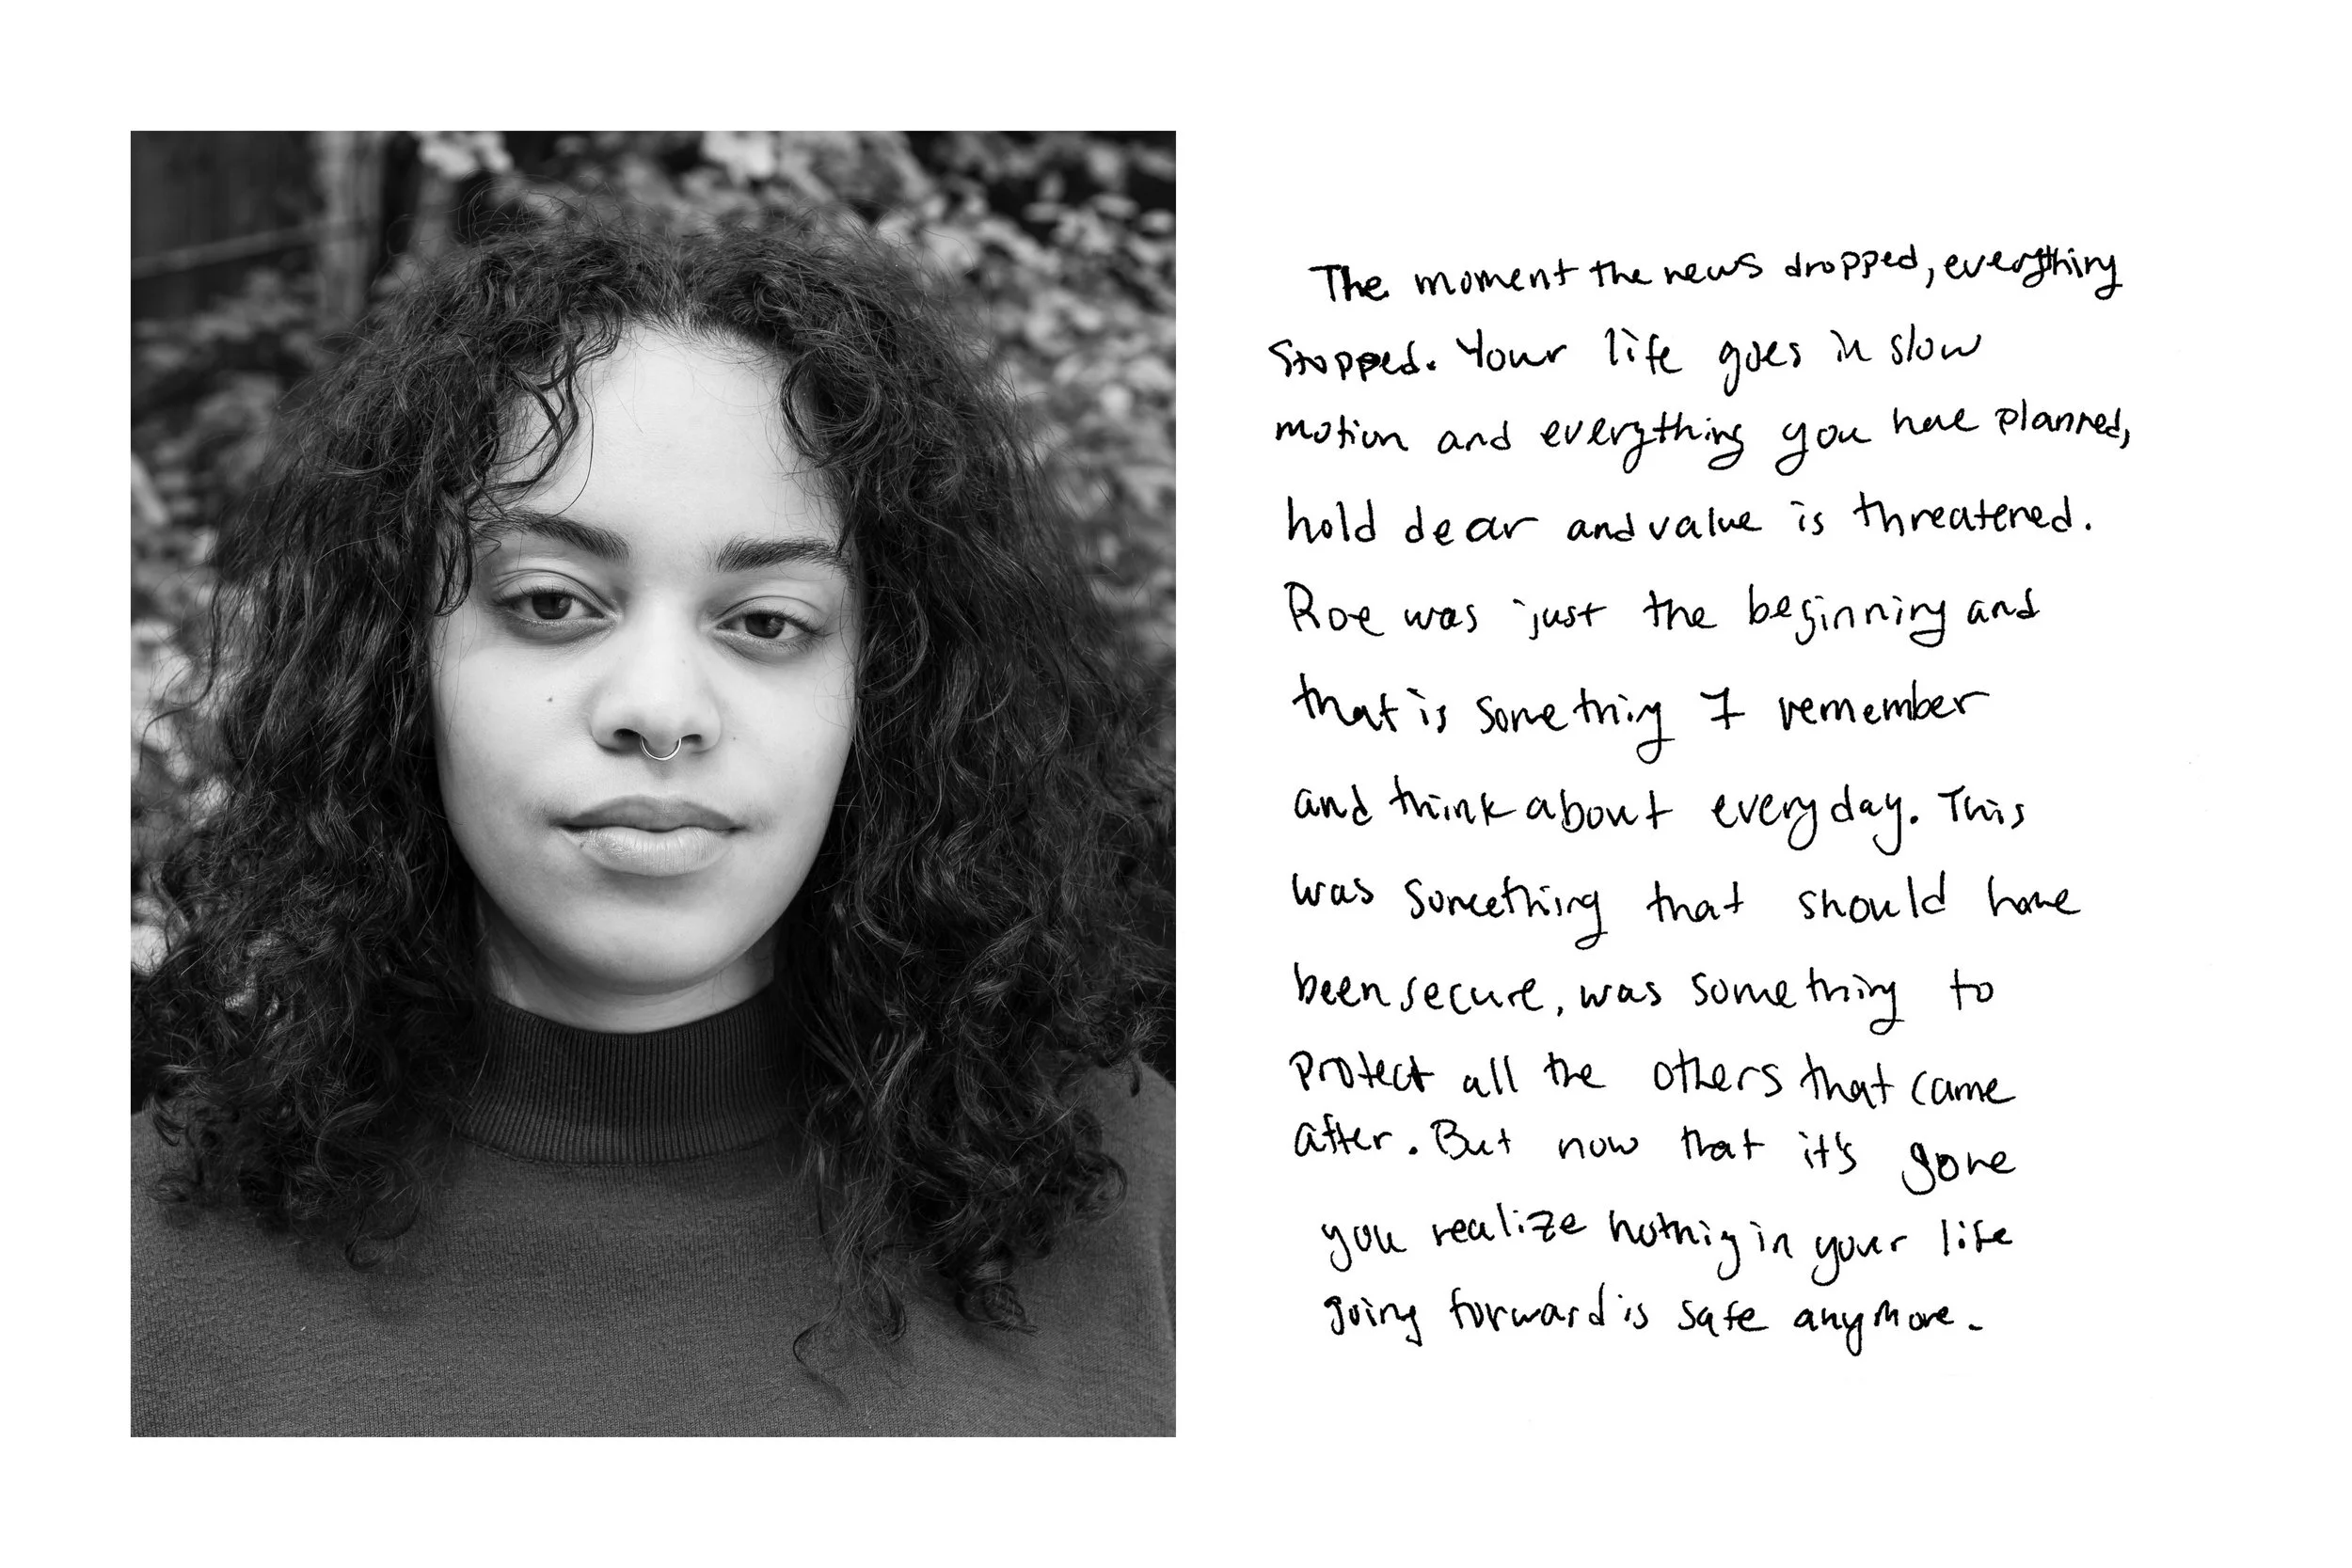 The moment the news dropped, everything
stopped. Your life goes in slow
motion and everything you have planned,
hold dear and value is threatened.
Roe was just the beginning and
that is something I remember
and think about everyday. This
was something that should have
been secure, was something to
protect all the others that came
after. But now that it's gone
you realize nothig in your life
going forward is safe anymore.